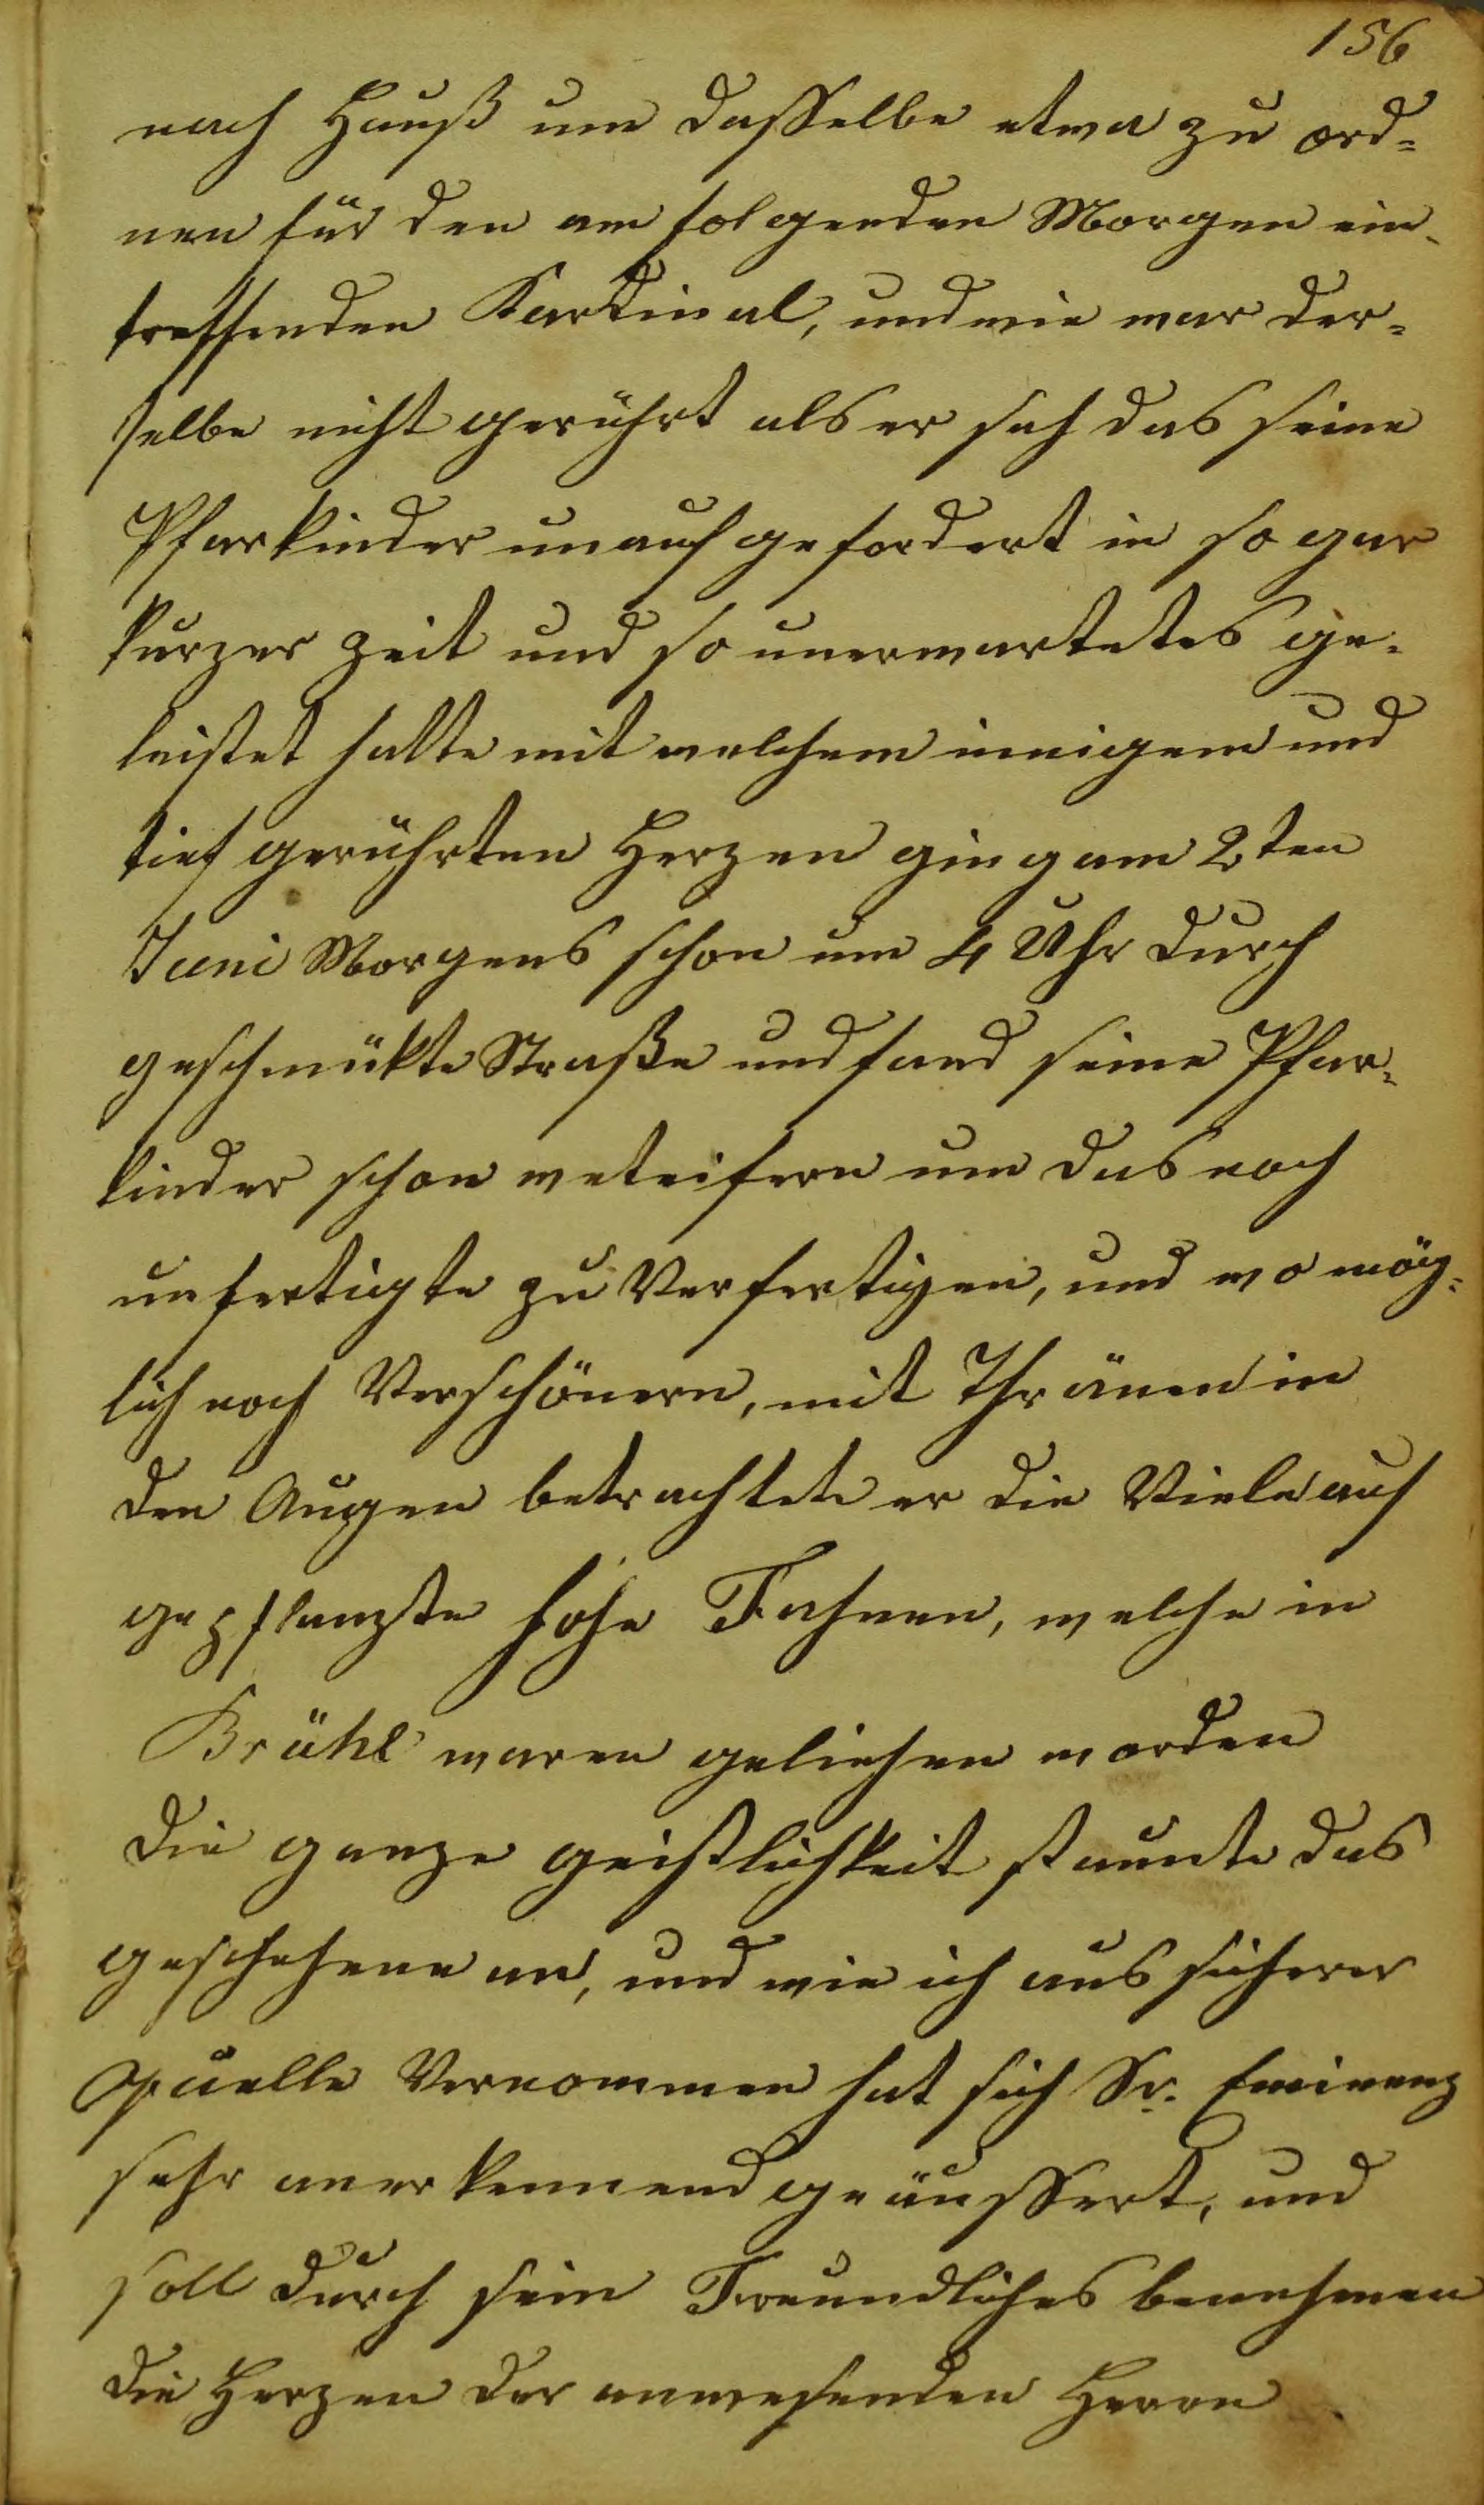 156
nach Hauß um dasselbe etwa zu ord=
nen für den am folgenden Morgen ein-
treffenden Kardinal, und wie war der=
selbe nicht gerührt als er sah das seine
Pfarkinder unaufgefordert in so gar
kurzer Zeit und so unerwartetes ge-
leistet hatte mit welchem innigem und
tief gerührten Herzen ging am 2ten
Juni Morgens schon um 4 Uhr durch
geschmükte Straße und fand seine Pfar=
kinder schon weteifern um das noch
unfertigte zu Verfertigen, und wo mög=
lich noch Verschönern, mit Thränen in
den Augen betrachtete er die Viele auf
gepflanzte hohe Fahnen, welche in
Brühl waren geliehen worden
die ganze geistlichkeit staunte das
geschehene an, und wie ich aus sicherer
Quelle Vernommen hat sich Sr. Eminenz
sehr anerkennend geäussert, und
soll durch sein Freundliches benehmen
die Herzen der anwesenden Herrn